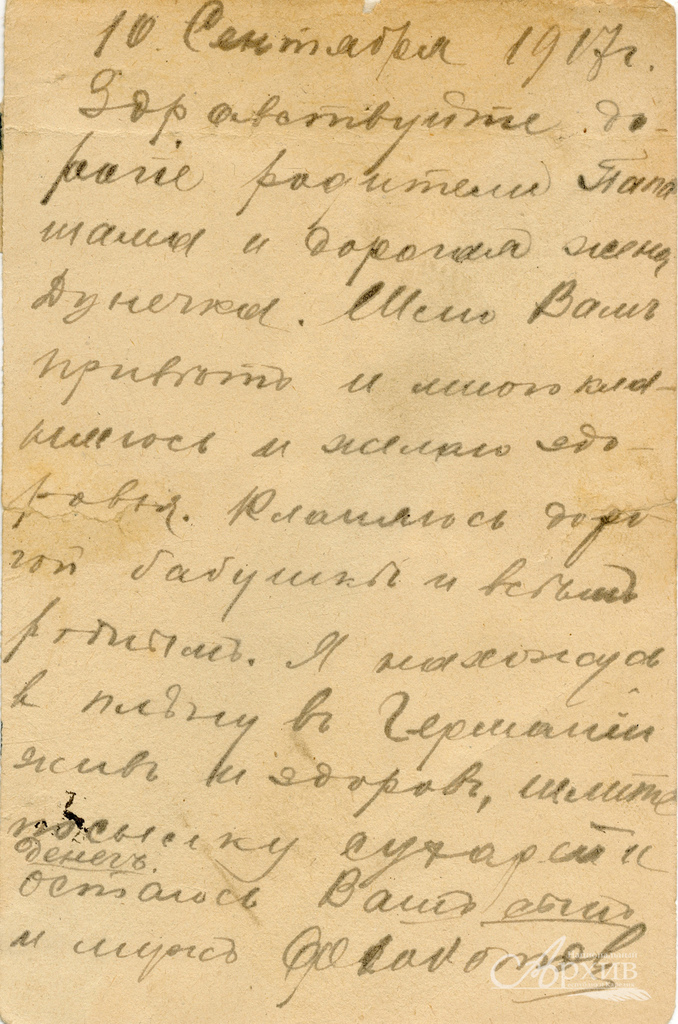 10 Сентября 1917 г.
Здравствуйте до-
рогіе родители Папа
мама и дорогая жена
Дунечка. Шлю Вамъ
привѣтъ и много кла-
няюсь и желаю здо-
ровья. Кланяюсь доро-
гой бабушкѣ и всѣмъ
роднымъ. Я нахожусь
в плѣну въ Германіи
живъ и здоровъ, шлите
посылку сухарей и
денегъ.
остаюсь Вашъ сынъ
и мужъ
Национальный
Архив